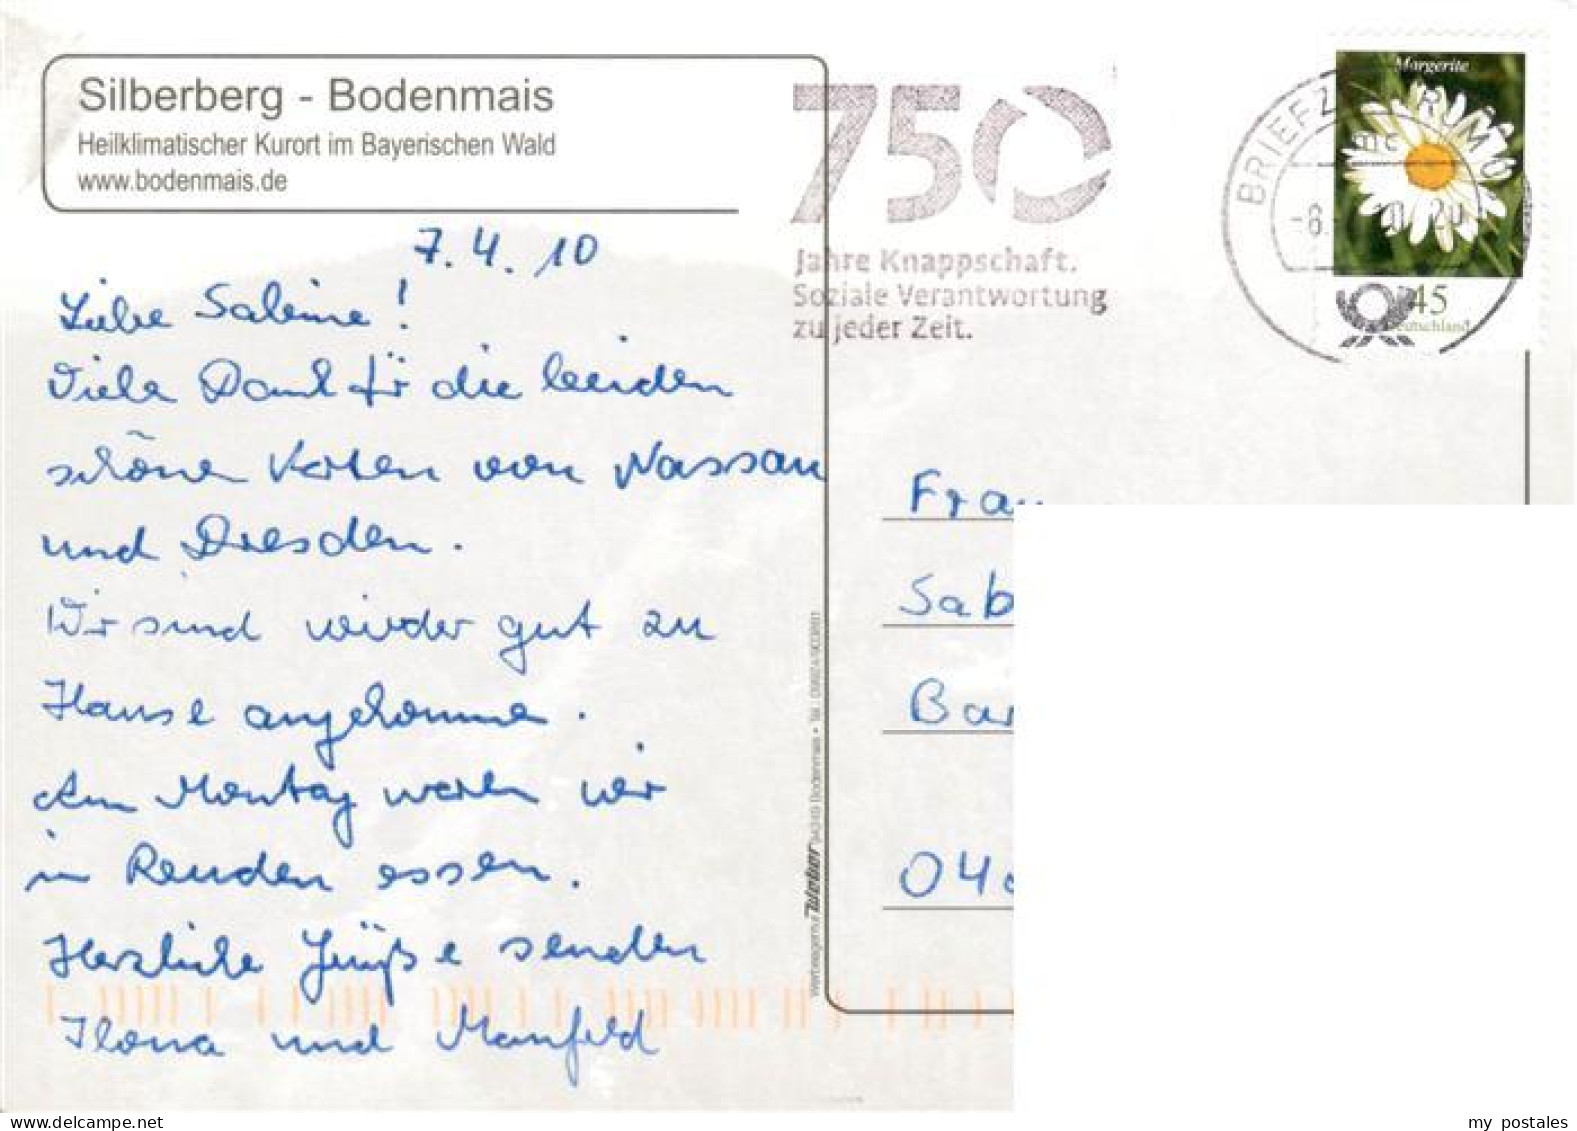 Silberberg - Bodenmais
Heilklimatischer Kurort im Bayerischen Wald
www.bodenmais.de
7.4.10
Liebe Sabine!
Viele Dank für die beiden
schöne Karten von Nassau
und Dresden.
Wir sind wieder gut zu
Hause angekommen.
Am Montag waren wir
in essen.
Herzliche Grüße senden
Ilona und Manfred
750
Jahre Knappschaft.
Soziale Verantwortung
zu jeder Zeit.
Margerite
45
Deutschland
BRIEFZ
RUM
Frau
Sab
Bar
04
Werbeagentur Weber 94249 Bodenmais • Tel.: 09924/903801
my postales